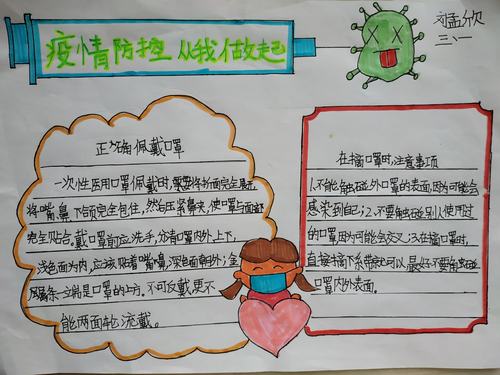 疫情防控 从我做起
刘孟欣
三、一
正确佩戴口罩
一次性医用口罩佩戴时,要将折面完全展开
将嘴、鼻、下颌完全包住,然后压紧鼻夹,使口罩与面部
完全贴合。戴口罩前应洗手,分清口罩内外、上下,
浅色面为内,应该贴着嘴鼻,深色面朝外;金
属条一端是口罩的上方。不可反戴,更不
能两面轮流戴。
在摘口罩时,注意事项
1.不能触碰外口罩的表面,因为可能会
感染到自己;2.不要触碰别人使用过
的口罩因为可能会交叉;3.在摘口罩时,
直接摘下系带就可以最好不要触碰
口罩内外表面。